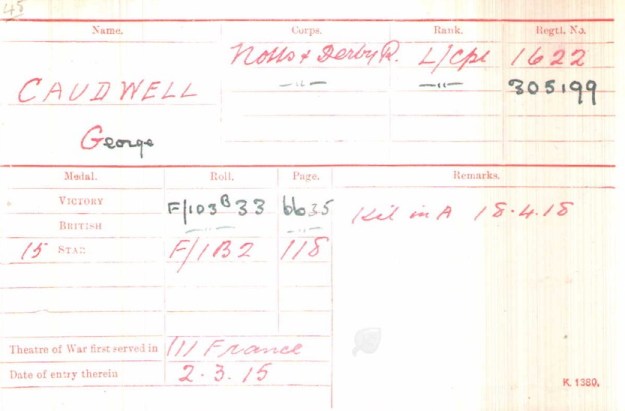 45
Name. Corps. Rank. Regtl. No.
Notts & Derby R. L/Cpl 1622
CAUDWELL —"— —"— 305199
George
Medal. Roll. Page. Remarks.
VICTORY F/103 B 33 6635
BRITISH —"— —"— Kil in A 18.4.18
15 STAR F/1B2 118
Theatre of War first served in (1) France
Date of entry therein 2.3.15
K 1380.